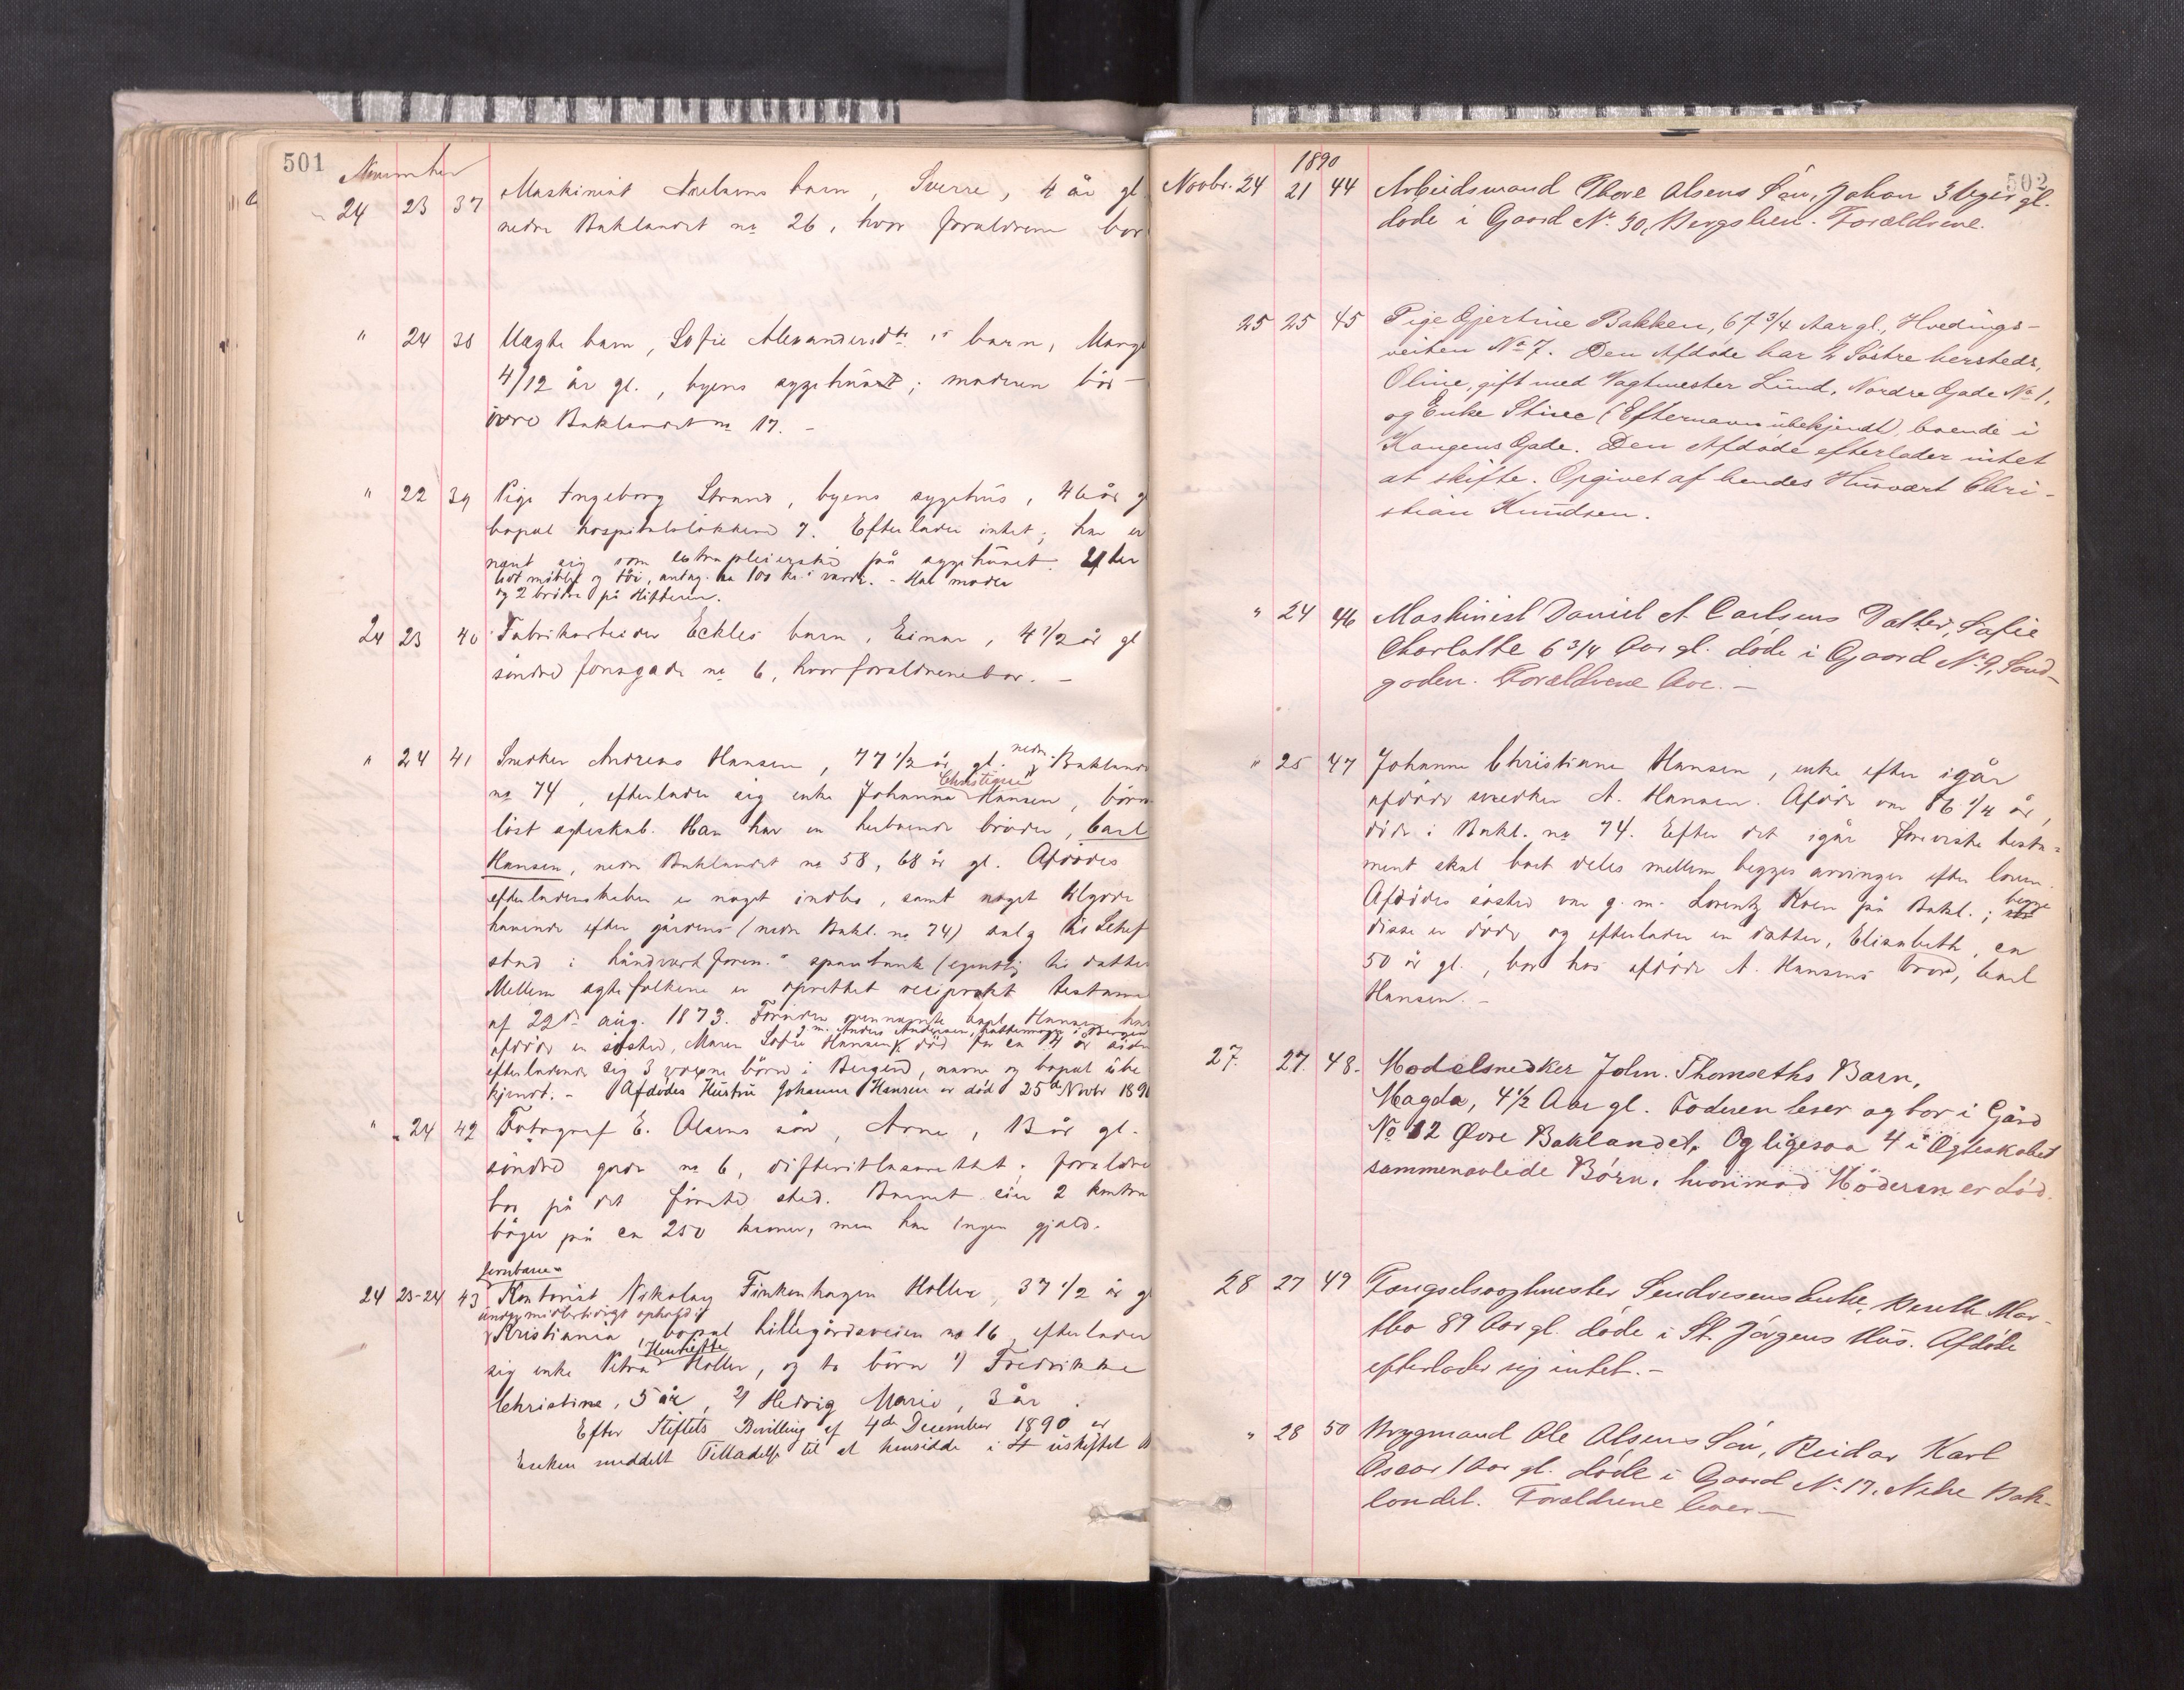 501
November
24 23 37 Maskinist Nielsens barn, Sverre, 4 år gl
nedre Baklandet no 26, hvor forældrene bor
" 24 38 Uægte barn, Sofie Alexandersdtr.s barn,
4/12 år gl., byens sygehus; moderen bor
övre Baklandet no 17. -
" 22 39 Pige Ingeborg Strand, byens sygehus, 46 år g
bopæl hospitalsløkkene 7. Efterlader intet; har er
næret sig som extra pleierske på sygehuset. Efter
lidt möbler og töi, antag. ca 100 kr.s værdi. - Har moder
og 2 brödre på Hitteren.
24 23 40 Fabrikarbeider Eckles barn, Einar, 4 1/2 år gl
söndre gade no 6, hvor forældrene bor. -
" 24 41 Snedker Andreas Hansen, 77 1/2 år gl. nedre Baklande
no 74, efterlader sig enke Johanna Christiane Hansen, barn-
löst egteskab. Han har en herboende broder, Carl
Hansen, nedre Baklandet no 58, 68 år gl. Afdödes
efterladenskaber er noget indbo, samt noget tilgode
havende efter gårdens (nedre Bakl. no 74) salg
stad i håndverkforen.s sparebank (egentlig
Mellem egtefolkene er oprettet reciprokt testame
af 22de aug. 1873. Foruden ovennævnte Carl Hansen har
afdöde en söster, Maren Sofie Hansen g. m. Anders Andersen, i Bergen, död for ca 14 år siden
efterladende sig 3 voxne börn i Bergen, navne og bopæl ube
kjendt. - Afdödes Hustru Johanne Hansen er död 25de Novbr 1890
" 24 42 Fotograf E. Olsens sön, Arne, 13 år gl.
söndre gade no 6, difteritlazarettet; forældre
bor på det först. sted. Barnet eier 2 kontra
böger på ca 250 kroner, men har ingen gjæld.
24 23-24 43 Jernbane-
Kontorist Nikolay Finkenhagen Holler, 37 1/2 år g
Kristiania, bopæl Lillegårdsveien no 16, efterlader
sig enke Petra Henriette Holler, og to börn 1) Fredrikke
Christine, 5 år, 2) Hedvig Marie, 3 år.
Efter Stiftets Bevilling af 4de December 1890 er
Enken meddelt Tilladelse til at hensidde i uskiftet B
502
1890
Novbr. 24 21 44 Arbeidsmand Thore Olsens Sön, Johan 3 Uger gl.
döde i Gaard No. 30, Bergslien. Forældrene.
25 25 45 Pige Gjertine Bakken, 67 3/4 Aar gl., Hvedings-
veiten No 7. Den Afdøde har 2 Søstre hersteds,
Oline, gift med Vagtmester Lund, Nordre Gade No 1,
og Enke Stine (Efternavn ubekjendt), boende i
Kongens Gade. Den Afdøde efterlader intet
at skifte. Opgivet af hendes Husvært Chri-
stian Knudsen.
" 24 46 Maskinist Daniel A Carlsens Datter, Sofie
Charlotte 6 3/4 Aar gl. döde i Gaard No. 9, Sand-
gaden. Forældrene leve. -
" 25 47 Johanne Christiane Hansen, enke efter igår
afdöde snedker A. Hansen. Afdöde var 86 1/4 år,
döde i Bakl. no 74. Efter det igår foreviste testa-
ment skal boet deles mellem begges arvinger efter loven.
Afdödes söster var g. m. Lorentz Koen på Bakl.; begge
disse er döde og efterlader en datter, Elisabeth, ca
50 år gl., bor hos afdöde A. Hansens broder, Carl
Hansen. -
27. 27. 48. Modelsnedker John. Thomseths Barn,
Magda, 4 1/2 Aar gl. Faderen lever og bor i Gård
No 12 Øvre Baklandet. Og ligesaa 4 i Ægteskabet
sammenavlede Børn, hvorimod Moderen er død.
28 27 49 Fængselsvagtmester Sendresens Enke, Mar-
tha 89 Aar gl. döde i St. Jörgens Hus. Afdöde
efterlader sig intet. -
" 28 50 Brygmand Ole Olsens Sön, Reidar Karl
Oscar 1 Aar gl. döde i Gaard No. 17, Nedre Bak-
landet. Forældrene lever -